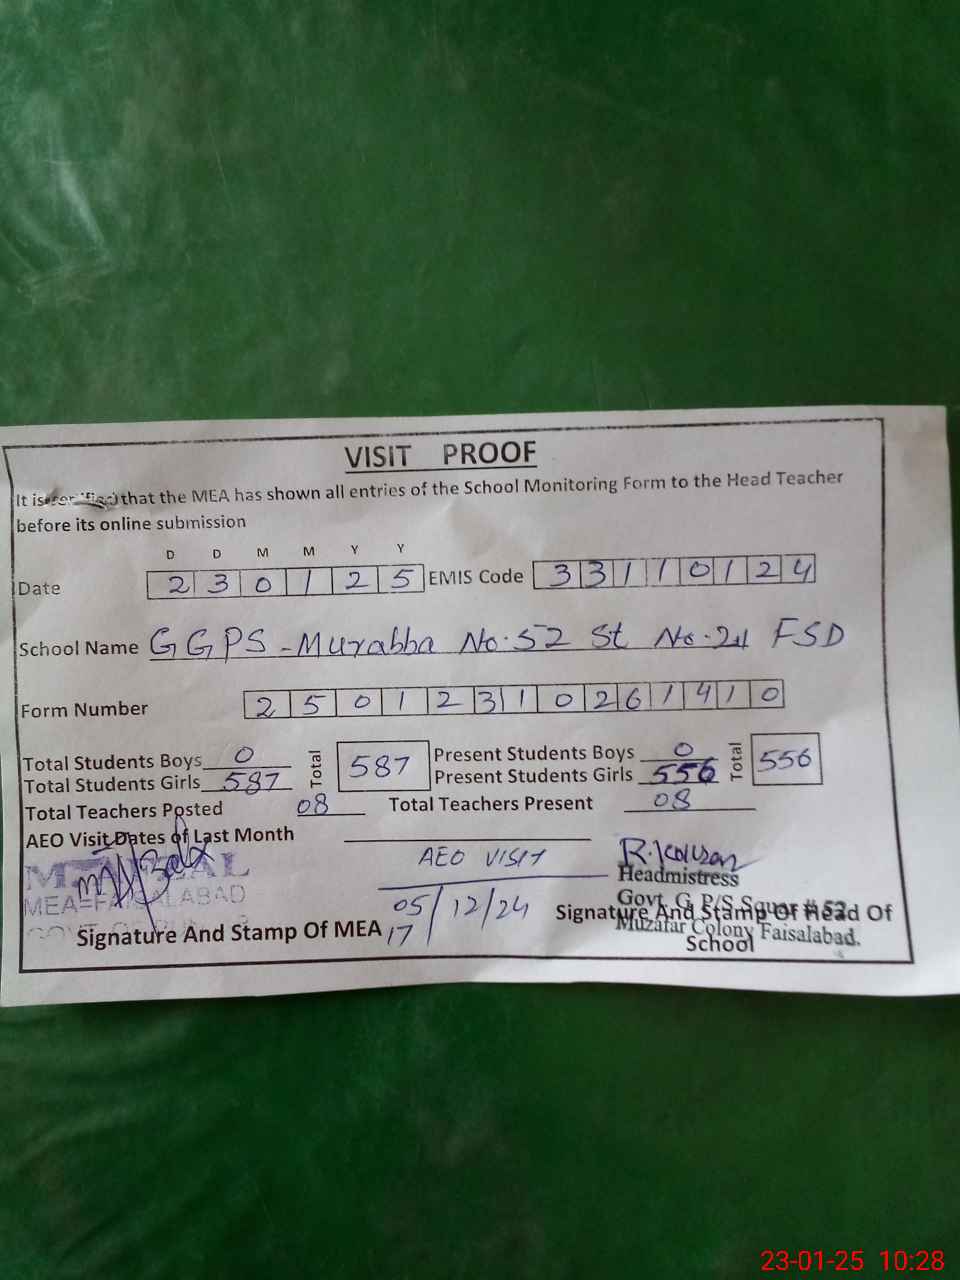 VISIT PROOF
It is certified that the MEA has shown all entries of the School Monitoring Form to the Head Teacher
before its online submission
D D M M Y Y
Date 2 3 0 1 2 5 EMIS Code 3 3 1 1 0 1 2 4
School Name GGPS - Murabba No. 52 St No. 24 FSD
Form Number 2 5 0 1 2 3 1 0 2 6 1 4 1 0
Total Students Boys 0 Total 587 Present Students Boys 0 Total 556
Total Students Girls 587 Present Students Girls 556
Total Teachers Posted 08 Total Teachers Present 08
AEO Visit Dates of Last Month
AEO VISIT
05/12/24
17
MEA=FAISALABAD
Signature And Stamp Of MEA
R. Kousar
Headmistress
Govt. G. P/S Squar # 52
Muzafar Colony Faisalabad.
Signature And Stamp Of Head Of
School
23-01-25 10:28